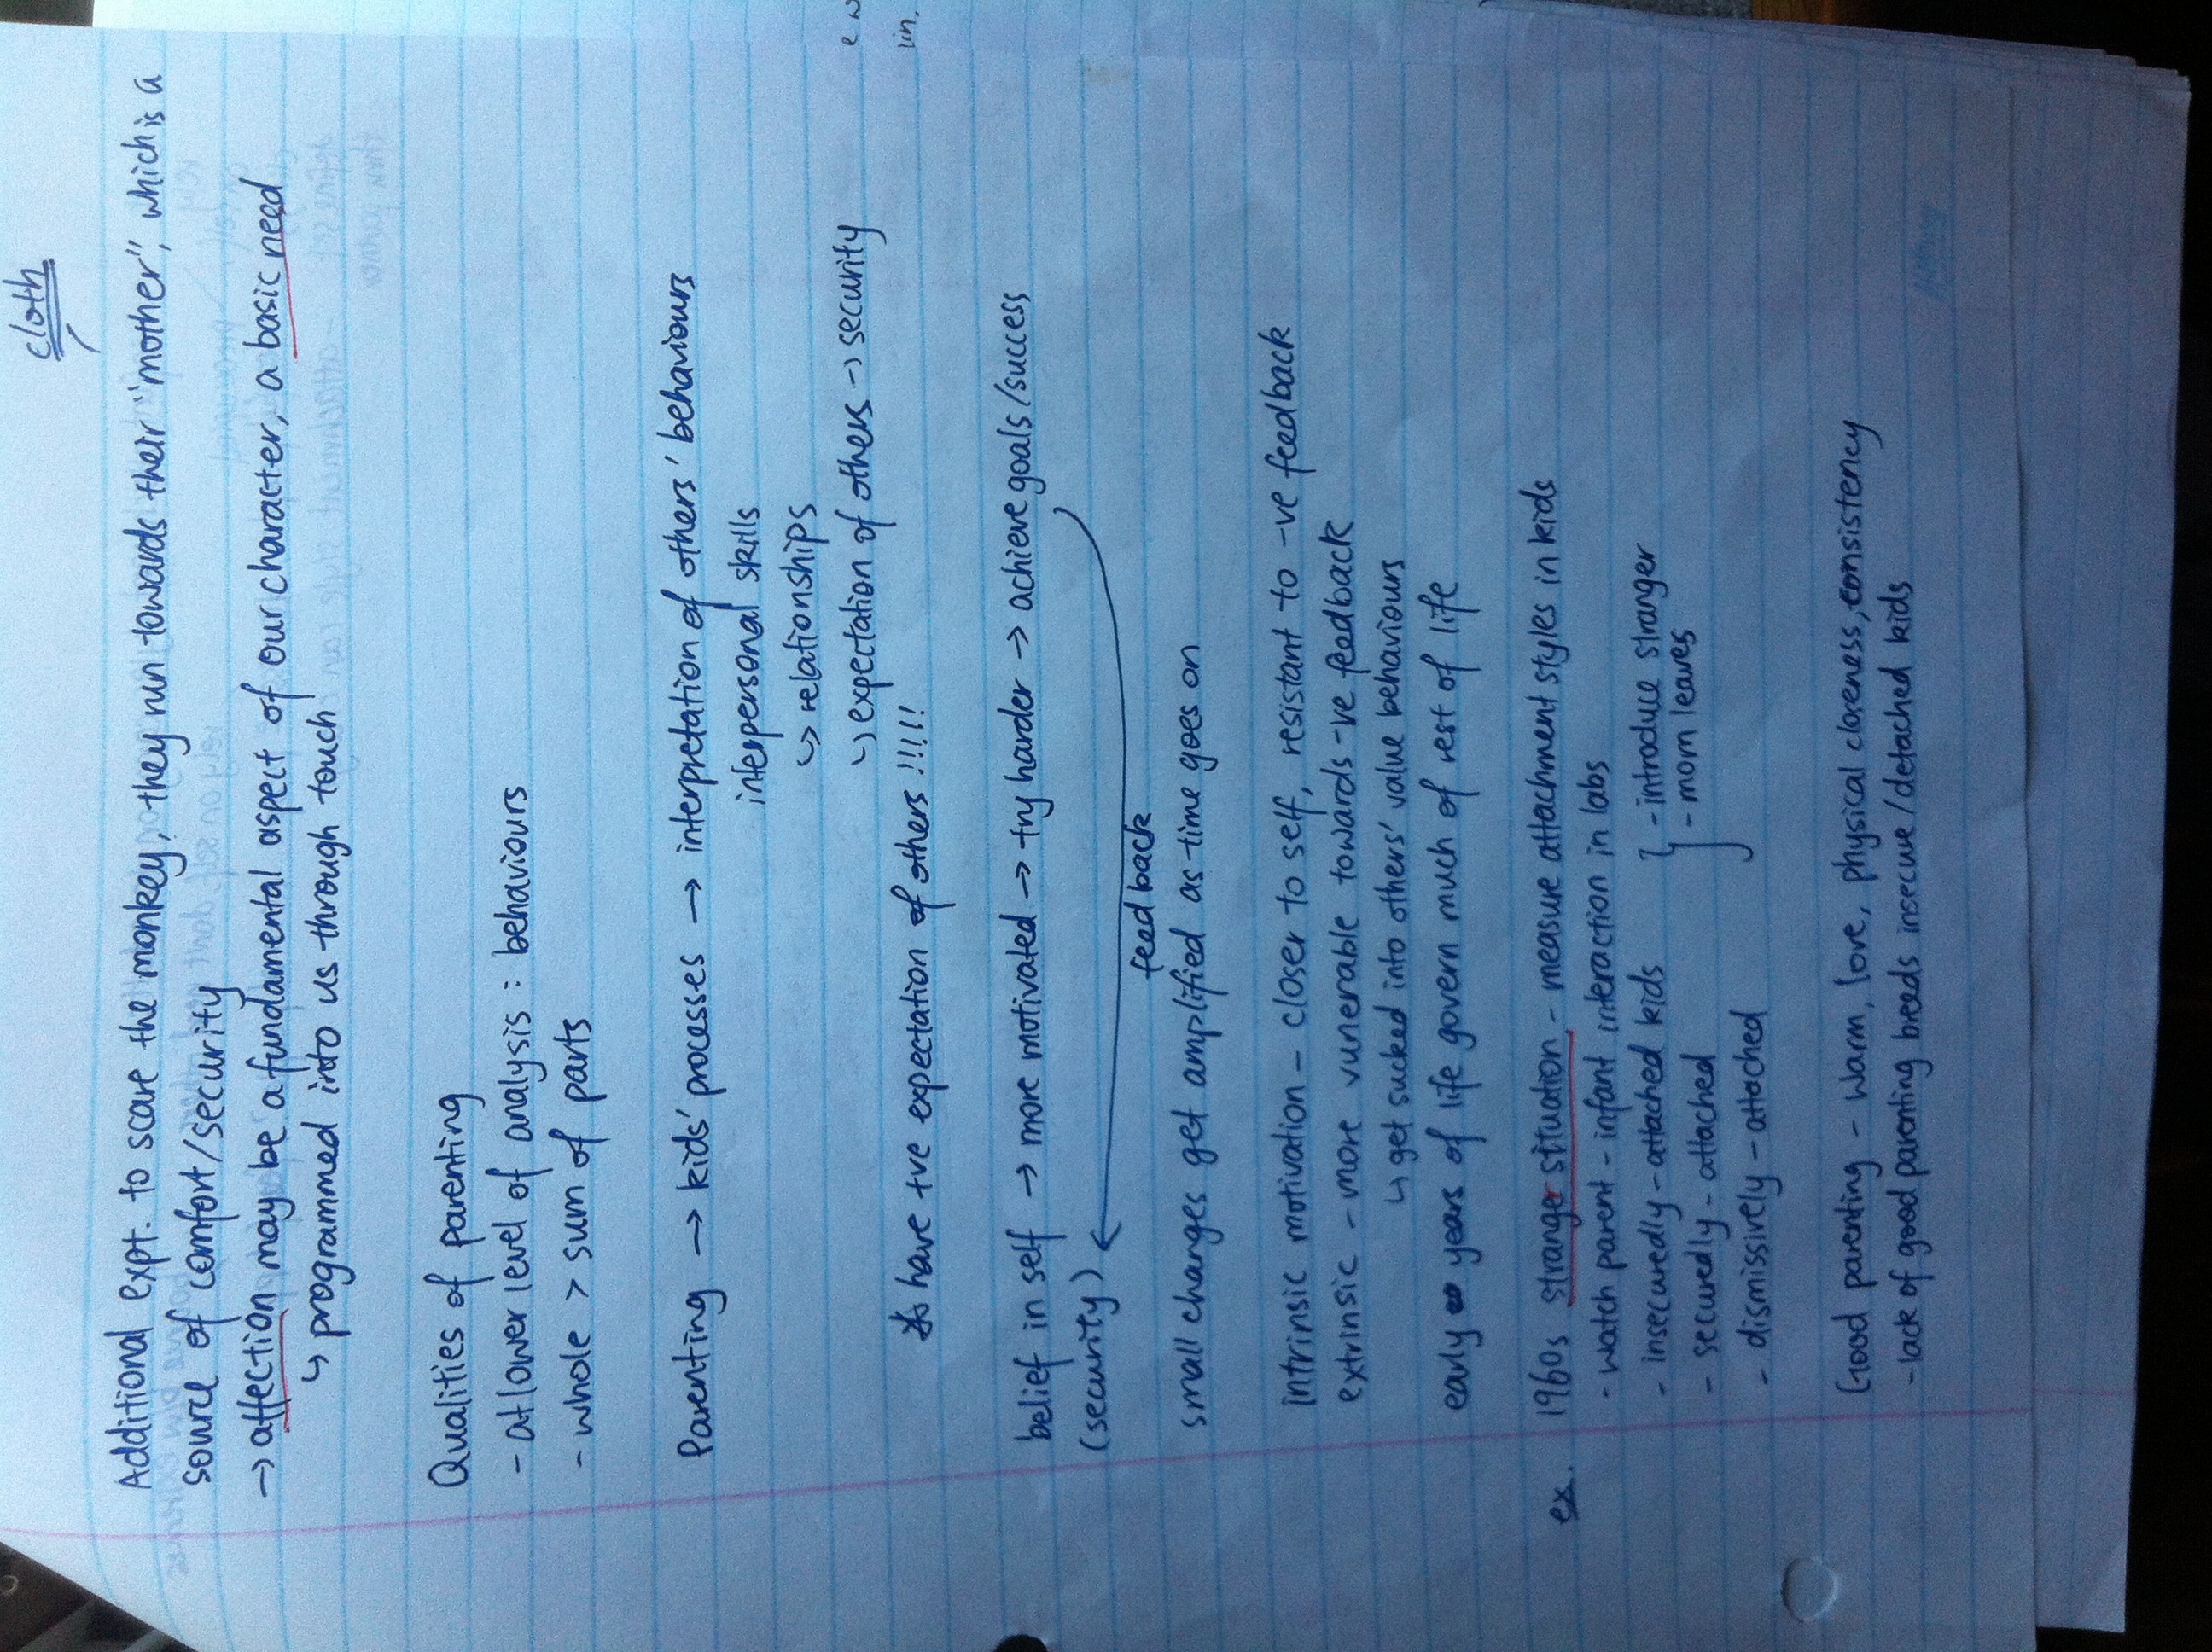 cloth
Additional expt. to scare the monkey, they run towards their "mother", which is a
source of comfort/security
→ affection may be a fundamental aspect of our character, a basic need
↳ programmed into us through touch
Qualities of parenting
- at lower level of analysis : behaviours
- whole > sum of parts
Parenting → kids' processes → interpretation of others' behaviours
interpersonal skills
↳ relationships
↳ expectation of others → security
have +ve expectation of others !!!!!
belief in self → more motivated → try harder → achieve goals/success
(security)
feedback
small changes get amplified as time goes on
intrinsic motivation - closer to self, resistant to -ve feedback
extrinsic - more vunerable towards -ve feedback
↳ get sucked into others' value behaviours
early years of life govern much of rest of life
ex. 1960s stranger situation - measure attachment styles in kids
- watch parent - infant interaction in labs
- insecuredly - attached kids } - introduce stranger
- securedly - attached - mom leaves
- dismissively - attached
Good parenting - warm, love, physical closeness, consistency
- lack of good parenting breeds insecure/detached kids